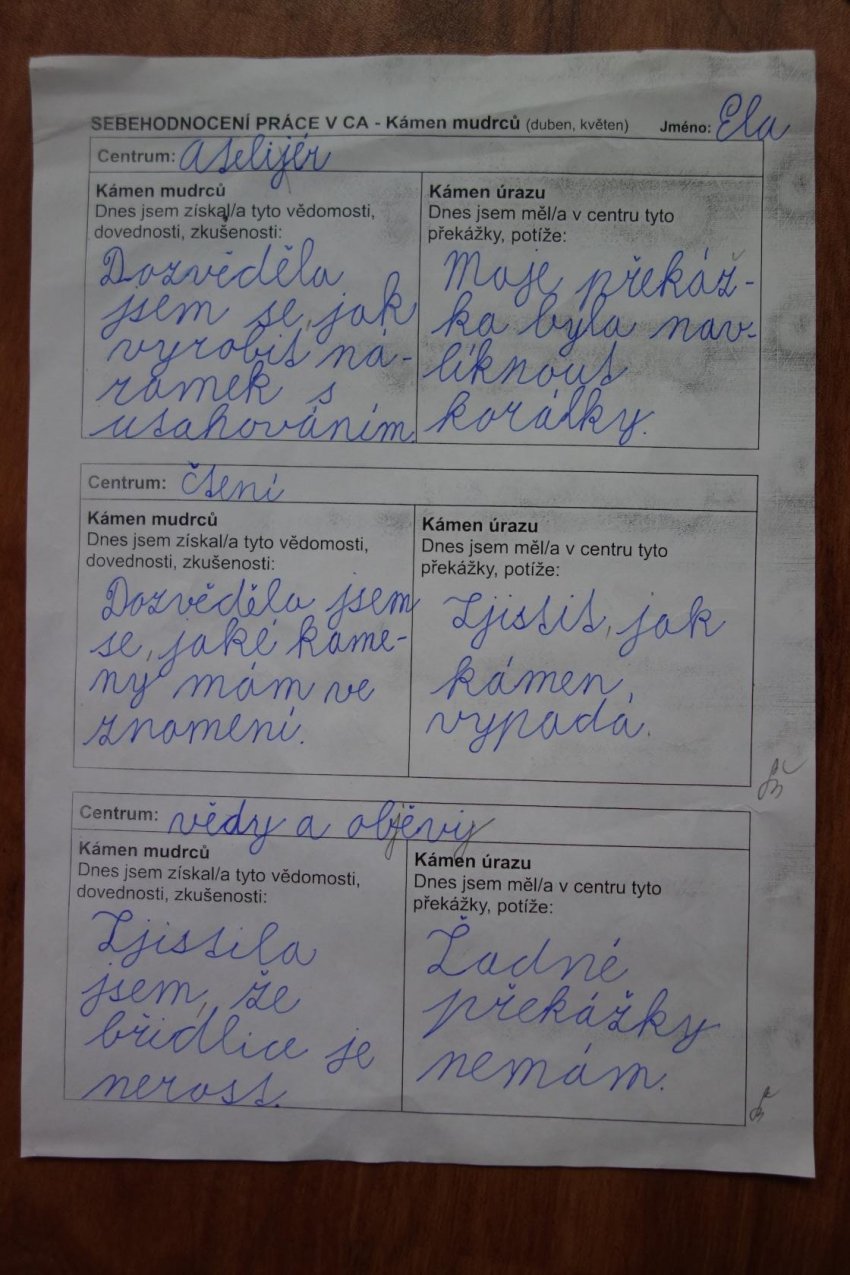 SEBEHODNOCENÍ PRÁCE V CA - Kámen mudrců (duben, květen) Jméno: Ela
Centrum: Atelijér
Kámen mudrců
Dnes jsem získal/a tyto vědomosti,
dovednosti, zkušenosti:
Dozvěděla
jsem se, jak
vyrobit ná-
ramek s
utahováním.
Kámen úrazu
Dnes jsem měl/a v centru tyto
překážky, potíže:
Moje překáž-
ka byla nav-
líknout
korálky.
Centrum: čtení
Kámen mudrců
Dnes jsem získal/a tyto vědomosti,
dovednosti, zkušenosti:
Dozvěděla jsem
se, jaké kame-
ny mám ve
znamení.
Kámen úrazu
Dnes jsem měl/a v centru tyto
překážky, potíže:
Zjistit, jak
kámen
vypadá.
Centrum: vědy a objevy
Kámen mudrců
Dnes jsem získal/a tyto vědomosti,
dovednosti, zkušenosti:
Zjistila
jsem, že
břidlice je
nerost.
Kámen úrazu
Dnes jsem měl/a v centru tyto
překážky, potíže:
Žadné
překážky
nemám.